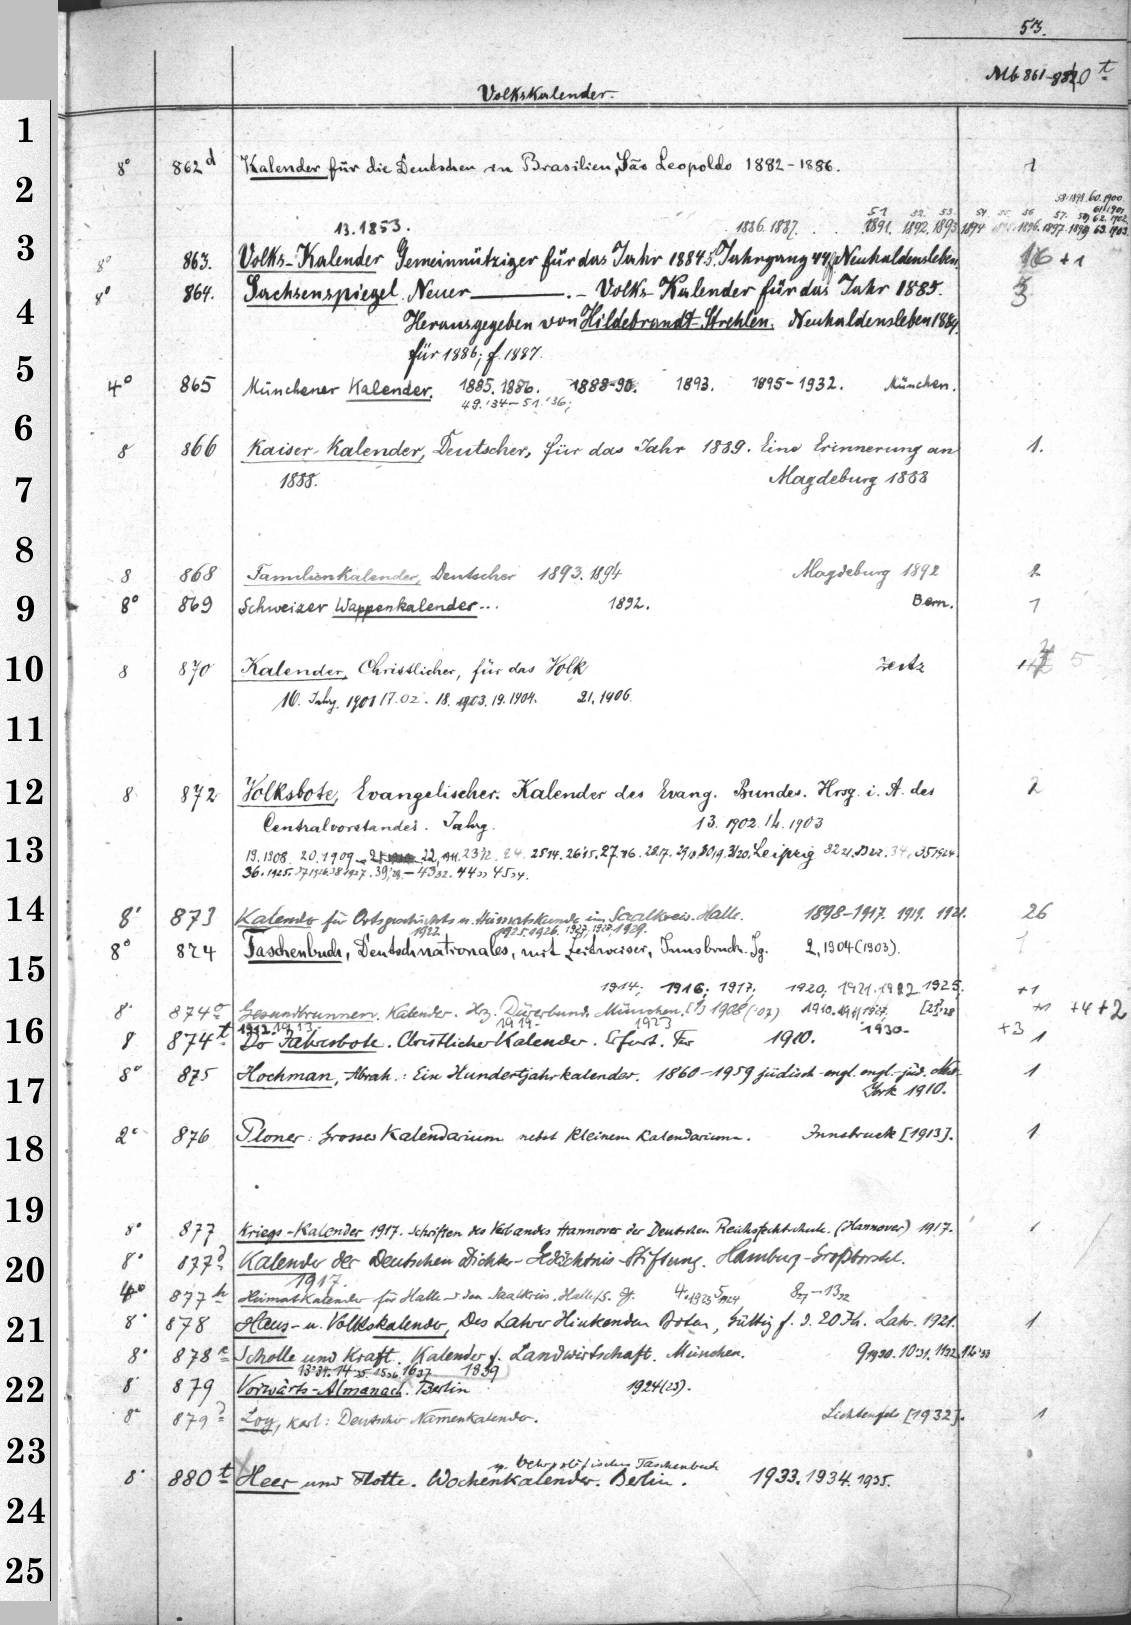 53.
Mb 861-880 t
Volkskalender.
8° 862 d Kalender für die Deutschen in Brasilien, São Leopoldo 1882-1886. 1
58. 1898. 60. 1900.
61. 1901.
13. 1853. 1886. 1887. 51. 1891. 52. 1892. 53. 1893. 54. 1894 1896. 57. 1897. 62. 1902. 63. 1903.
8° 863. Volks-Kalender Gemeinnütziger für das Jahr 1884 Jahrgang 44 Neuhaldensleben. 16 + 1
8° 864. Sachsenspiegel. Neuer ——. - Volks-Kalender für das Jahr 1885.
Herausgegeben von Hildebrandt-Strehlen. Neuhaldensleben 1884.
für 1886; f. 1887.
4° 865 Münchener Kalender. 1885. 1886. 1888-90. 1893. 1895-1932. München.
49. '34 - 51. '36;
8 866 Kaiser-Kalender, Deutscher, für das Jahr 1889. Eine Erinnerung an 1.
1888. Magdeburg 1888
8 868 Familienkalender, Deutscher 1893. 1894 Magdeburg 1892 2
8° 869 Schweizer Wappenkalender... 1892. Bern. 1
8 870 Kalender, Christlicher, für das Volk Zeitz 5
16. Jahrg. 1901 17. 02. 18. 1903. 19. 1904. 21. 1906.
8 872 Volksbote, Evangelischer. Kalender des Evang. Bundes. Hrsg. i. A. des 2
Centralvorstandes. Jahrg. 13. 1902. 14. 1903
19. 1908. 20. 1909. 22. 24. 25 14. 26 15. 27. 16. 28 17. Leipzig 32 21. 33 22. 34. 35 1924.
36. 1925. 37 1926. 38 1927. 39. 28. - 43 32. 44 33 45 34.
8° 873 Kalender für Ortsgeschichte u. Heimatskunde im Saalkreis. Halle. 1898-1917. 1919. 1921. 26
1922 1925. 1926. 1927. 1929.
8° 874 Taschenbuch, Deutschnationales, mit Zeitweiser, Innsbruck. Jg. 2, 1904 (1903).
1914; 1916; 1917; 1920; 1921. 1922 1925; +1
8° 874 a Gesundbrunnen. Kalender. Hrg. Dürerbund. München. 1908 ('07) 1910. 1911 +1 +4 +2
1912 1913 1919- 1923 1930- +3
8 874 t Der Jahrbote. Christlicher Kalender. Erfurt. Für 1910. 1
8° 875 Hochman, Abrah.: Ein Hundertjahrkalender. 1860-1959 jüdisch-engl. engl.-jüd. New- 1
York 1910.
2° 876 Ploner: Grosses Kalendarium nebst kleinem Kalendarium. Innsbruck [1913]. 1
8° 877 Kriegs-Kalender 1917. Schriften des Verbandes Hannover der Deutschen Reichsfechtschule. (Hannover) 1917. 1
8° 877 d Kalender der Deutschen Dichter-Gedächtnis-Stiftung. Hamburg-Großborstel.
1917.
4° 877 h Heimatkalender für Halle u. den Saalkreis. Halle/S. Jg. 4. 1923 5 1924 8 27 - 13 32
8° 878 Haus- u. Volkskalender, Des Lahrer Hinkenden Boten, Gültig f. d. 20 Jh. Lahr. 1921. 1.
8° 878 e Scholle und Kraft. Kalender f. Landwirtschaft. München. 9 1930. 10 31. 11 32. 12 '33
13 '34. 14 35. 15 36 16 37 1839
8 879 Vorwärts-Almanach. Berlin 1924 (23).
8° 879 d Loy, Karl: Deutscher Namenkalender. Lichtenfels [1932]. 1
m. wehrpolitischem Taschenbuch
8° 880 t Heer und Flotte. Wochenkalender. Berlin. 1933. 1934. 1935.
1
2
3
4
5
6
7
8
9
10
11
12
13
14
15
16
17
18
19
20
21
22
23
24
25